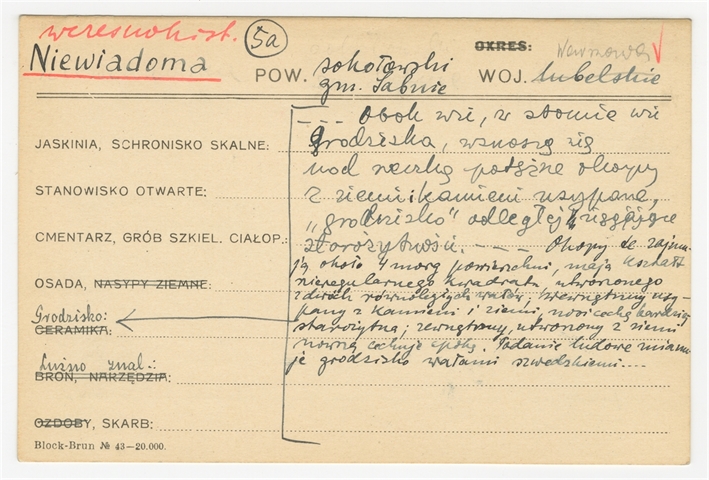 wczesnohist.
5a
Niewiadoma
POW. sokołowski
gm. Sabnie
OKRES: Warszowa
WOJ. lubelskie
JASKINIA, SCHRONISKO SKALNE:
STANOWISKO OTWARTE:
CMENTARZ, GRÓB SZKIEL. CIAŁOP.:
OSADA, NASYPY ZIEMNE
Grodzisko:
CERAMIKA:
Luźno znal.:
BROŃ, NARZĘDZIA:
OZDOBY, SKARB:
Block-Brun № 43—20.000.
--- Obok wsi, w stronie wsi
Grodziska, wznoszą się
nad rzeczką potężne okopy
z ziemi i kamieni usypane,
„grodzisko" odległej sięgające
starożytności. --- Okopy te zajmu-
ją około 4 morg powierzchni, mają kształt
nieregularnego kwadratu, utworzonego
z dwóch równoległych wałów; wewnętrzny usy-
pany z kamieni i ziemi, nosi cechę bardziej
starożytną; zewnętrzny, utworzony z ziemi
nowszą cechuje epokę. Podanie ludowe mianu-
je grodzisko wałami szwedzkiemi....